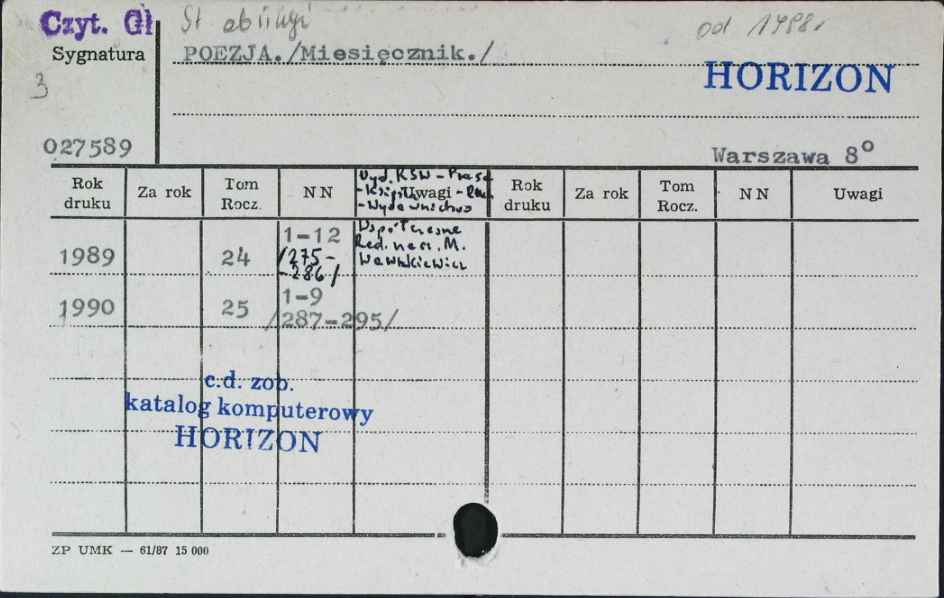 Czyt. Gł
St obsługi
od 1998r
Sygnatura
POEZJA./Miesięcznik./
3
HORIZON
027589
Warszawa 8°
Rok druku
Za rok
Tom Rocz.
NN
Uwagi
Rok druku
Za rok
Tom Rocz.
NN
Uwagi
Wyd. RSW - Prasa
- Książka - Ruch
- Wydawnictwo
Współczesne
Red. nacz. M.
Wawrzkiewicz
1989
24
1-12
/275-
-286/
1990
25
1-9
/287-295/
c.d. zob.
katalog komputerowy
HORIZON
ZP UMK — 61/87 15 000